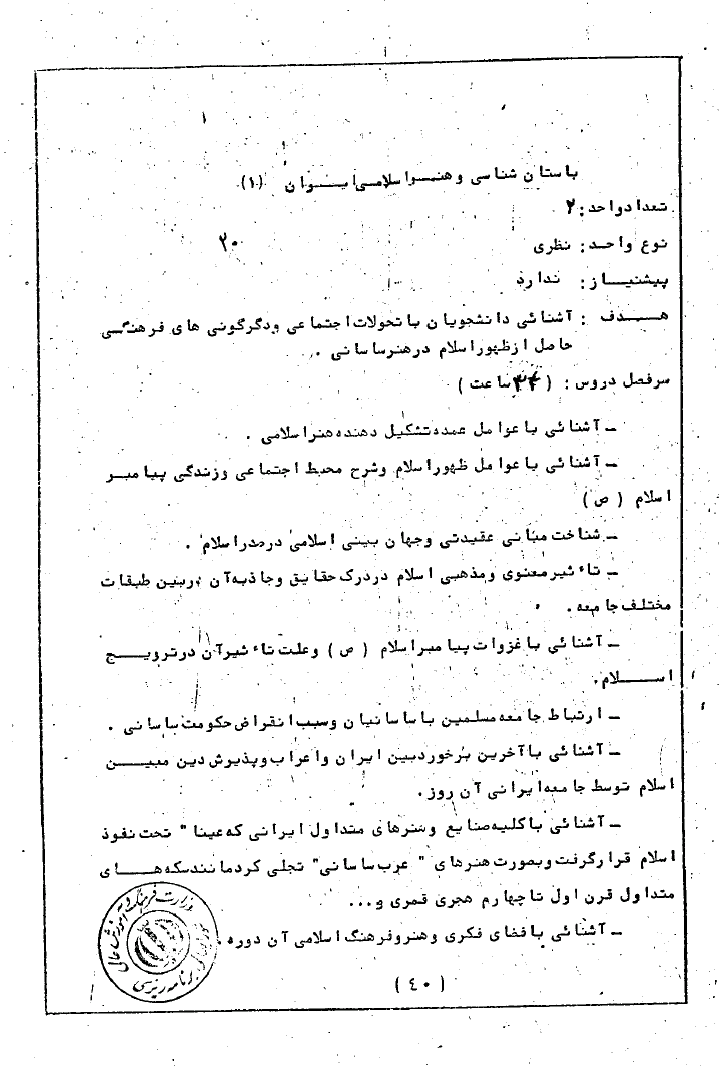 باستان شناسی و هنر اسلامی ایران (۱)
تعداد واحد: ۲
نوع واحد: نظری
۲۰
پیشنیاز: ندارد
هدف : آشنائی دانشجویان با تحولات اجتماعی ودگرگونی های فرهنگی
حاصل از ظهور اسلام در هنر ساسانی .
سرفصل دروس: (۳۴ ساعت)
ـ آشنائی با عوامل عمده تشکیل دهنده هنر اسلامی .
ـ آشنائی با عوامل ظهور اسلام وشرح محیط اجتماعی وزندگی پیامبر
اسلام (ص)
ـ شناخت مبانی عقیدتی وجهان بینی اسلامی در صدر اسلام .
ـ تاءثیر معنوی ومذهبی اسلام در درک حقایق وجاذبه آن دربین طبقات
مختلف جامعه .
ـ آشنائی با غزوات پیامبر اسلام (ص) وعلت تاءثیر آن در ترویج
اسلام.
ـ ارتباط جامعه مسلمین با ساسانیان وسبب انقراض حکومت ساسانی .
ـ آشنائی با آخرین برخورد بین ایران واعراب وپذیرش دین مبین
اسلام توسط جامعه ایرانی آن روز .
ـ آشنائی با کلیه صنایع وهنرهای متداول ایرانی که عینا" تحت نفوذ
اسلام قرار گرفت وبصورت هنرهای " عرب ساسانی" تجلی کرد مانند سکه های
متداول قرن اول تا چهارم هجری قمری و...
ـ آشنائی با فضای فکری و هنر وفرهنگ اسلامی آن دوره .
وزارت فرهنگ و آموزش عالی
برنامه ریزی
(٤٠)